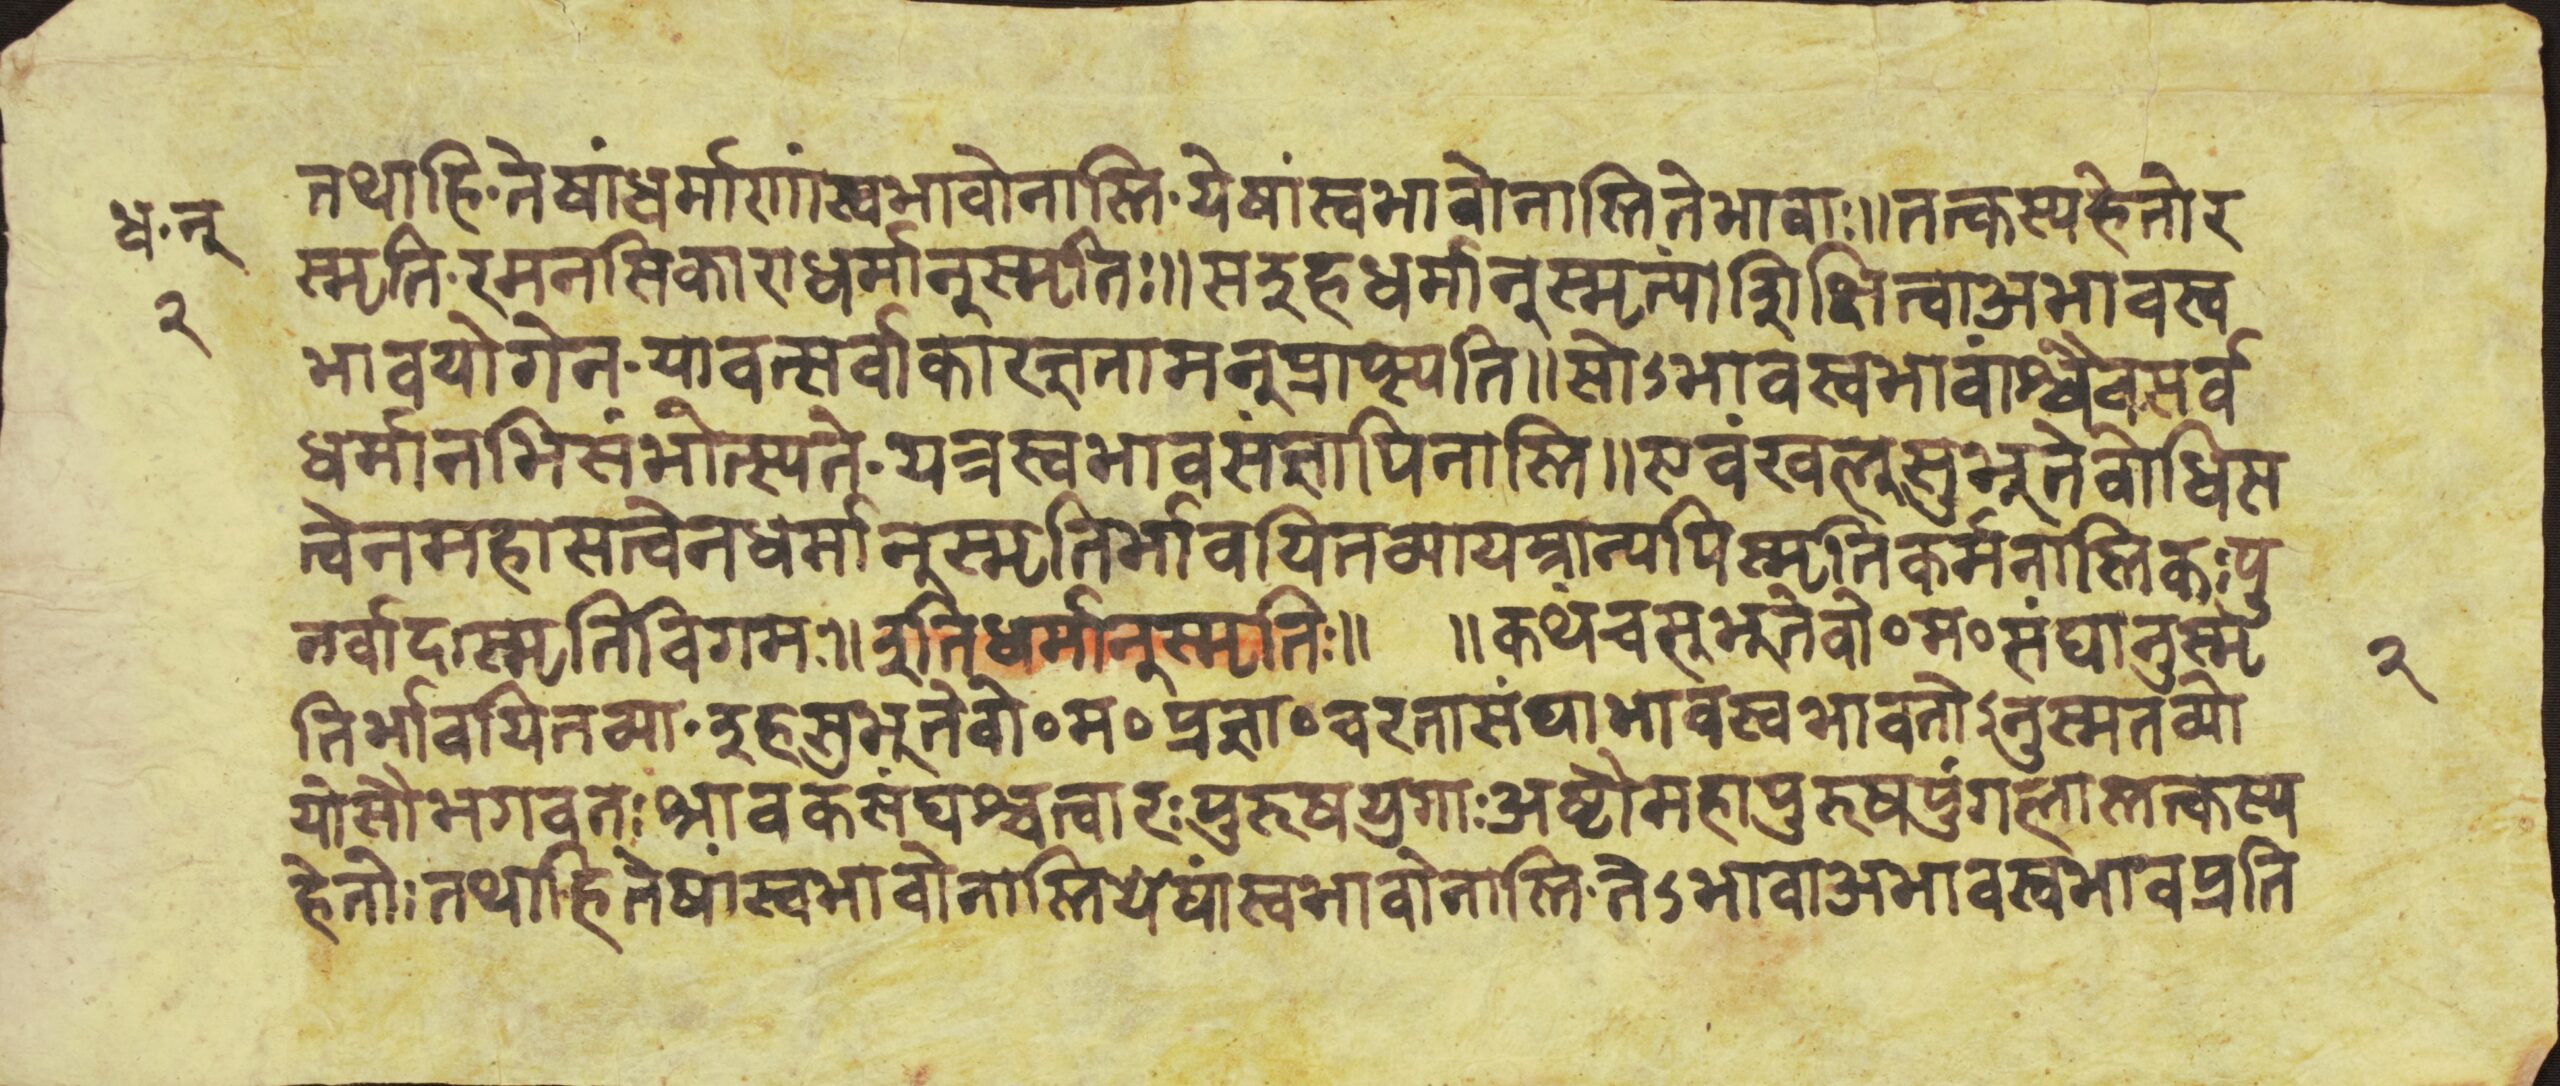 ध॰नु
२
तथाहि॰तेषांधर्माणांस्वभावोनास्ति॰येषांस्वभावोनास्तितेभावाः॥तत्कस्यहेतोर
स्मृति॰रमनसिकाराधर्मानुस्मृतिः॥सइहधर्मानुस्मृत्यांशिक्षित्वाअभावस्व
भावयोगेन॰यावत्सर्वाकारज्ञतामनुप्राप्स्यति॥सोऽभावस्वभावांश्चैवसर्व
धर्मानभिसंभोत्स्यते॰यत्रस्वभावसंज्ञापिनास्ति॥एवंखलुसुभूतेबोधिस
त्वेनमहासत्वेनधर्मानुस्मृतिर्भावयितव्यायत्रान्यपिस्मृतिकर्मनास्तिकःपु
नर्वादःस्मृतिविगमः॥इतिधर्मानुस्मृतिः॥ ॥कथंचसुभूतेबो॰म॰संघानुस्मृ
तिर्भावयितव्या॰इहसुभूतेबो॰म॰प्रज्ञा॰चरतासंघाभावस्वभावतोऽनुस्मतव्यो
योसौभगवतःश्रावकसंघश्चत्वारःपुरुषयुगाःअष्टौमहापुरुषपुंगलास्तत्कस्य
हेतोःतथाहितेषांस्वभावोनास्तियेषांस्वभावोनास्ति॰तेऽभावाअभावस्वभावप्रति
२